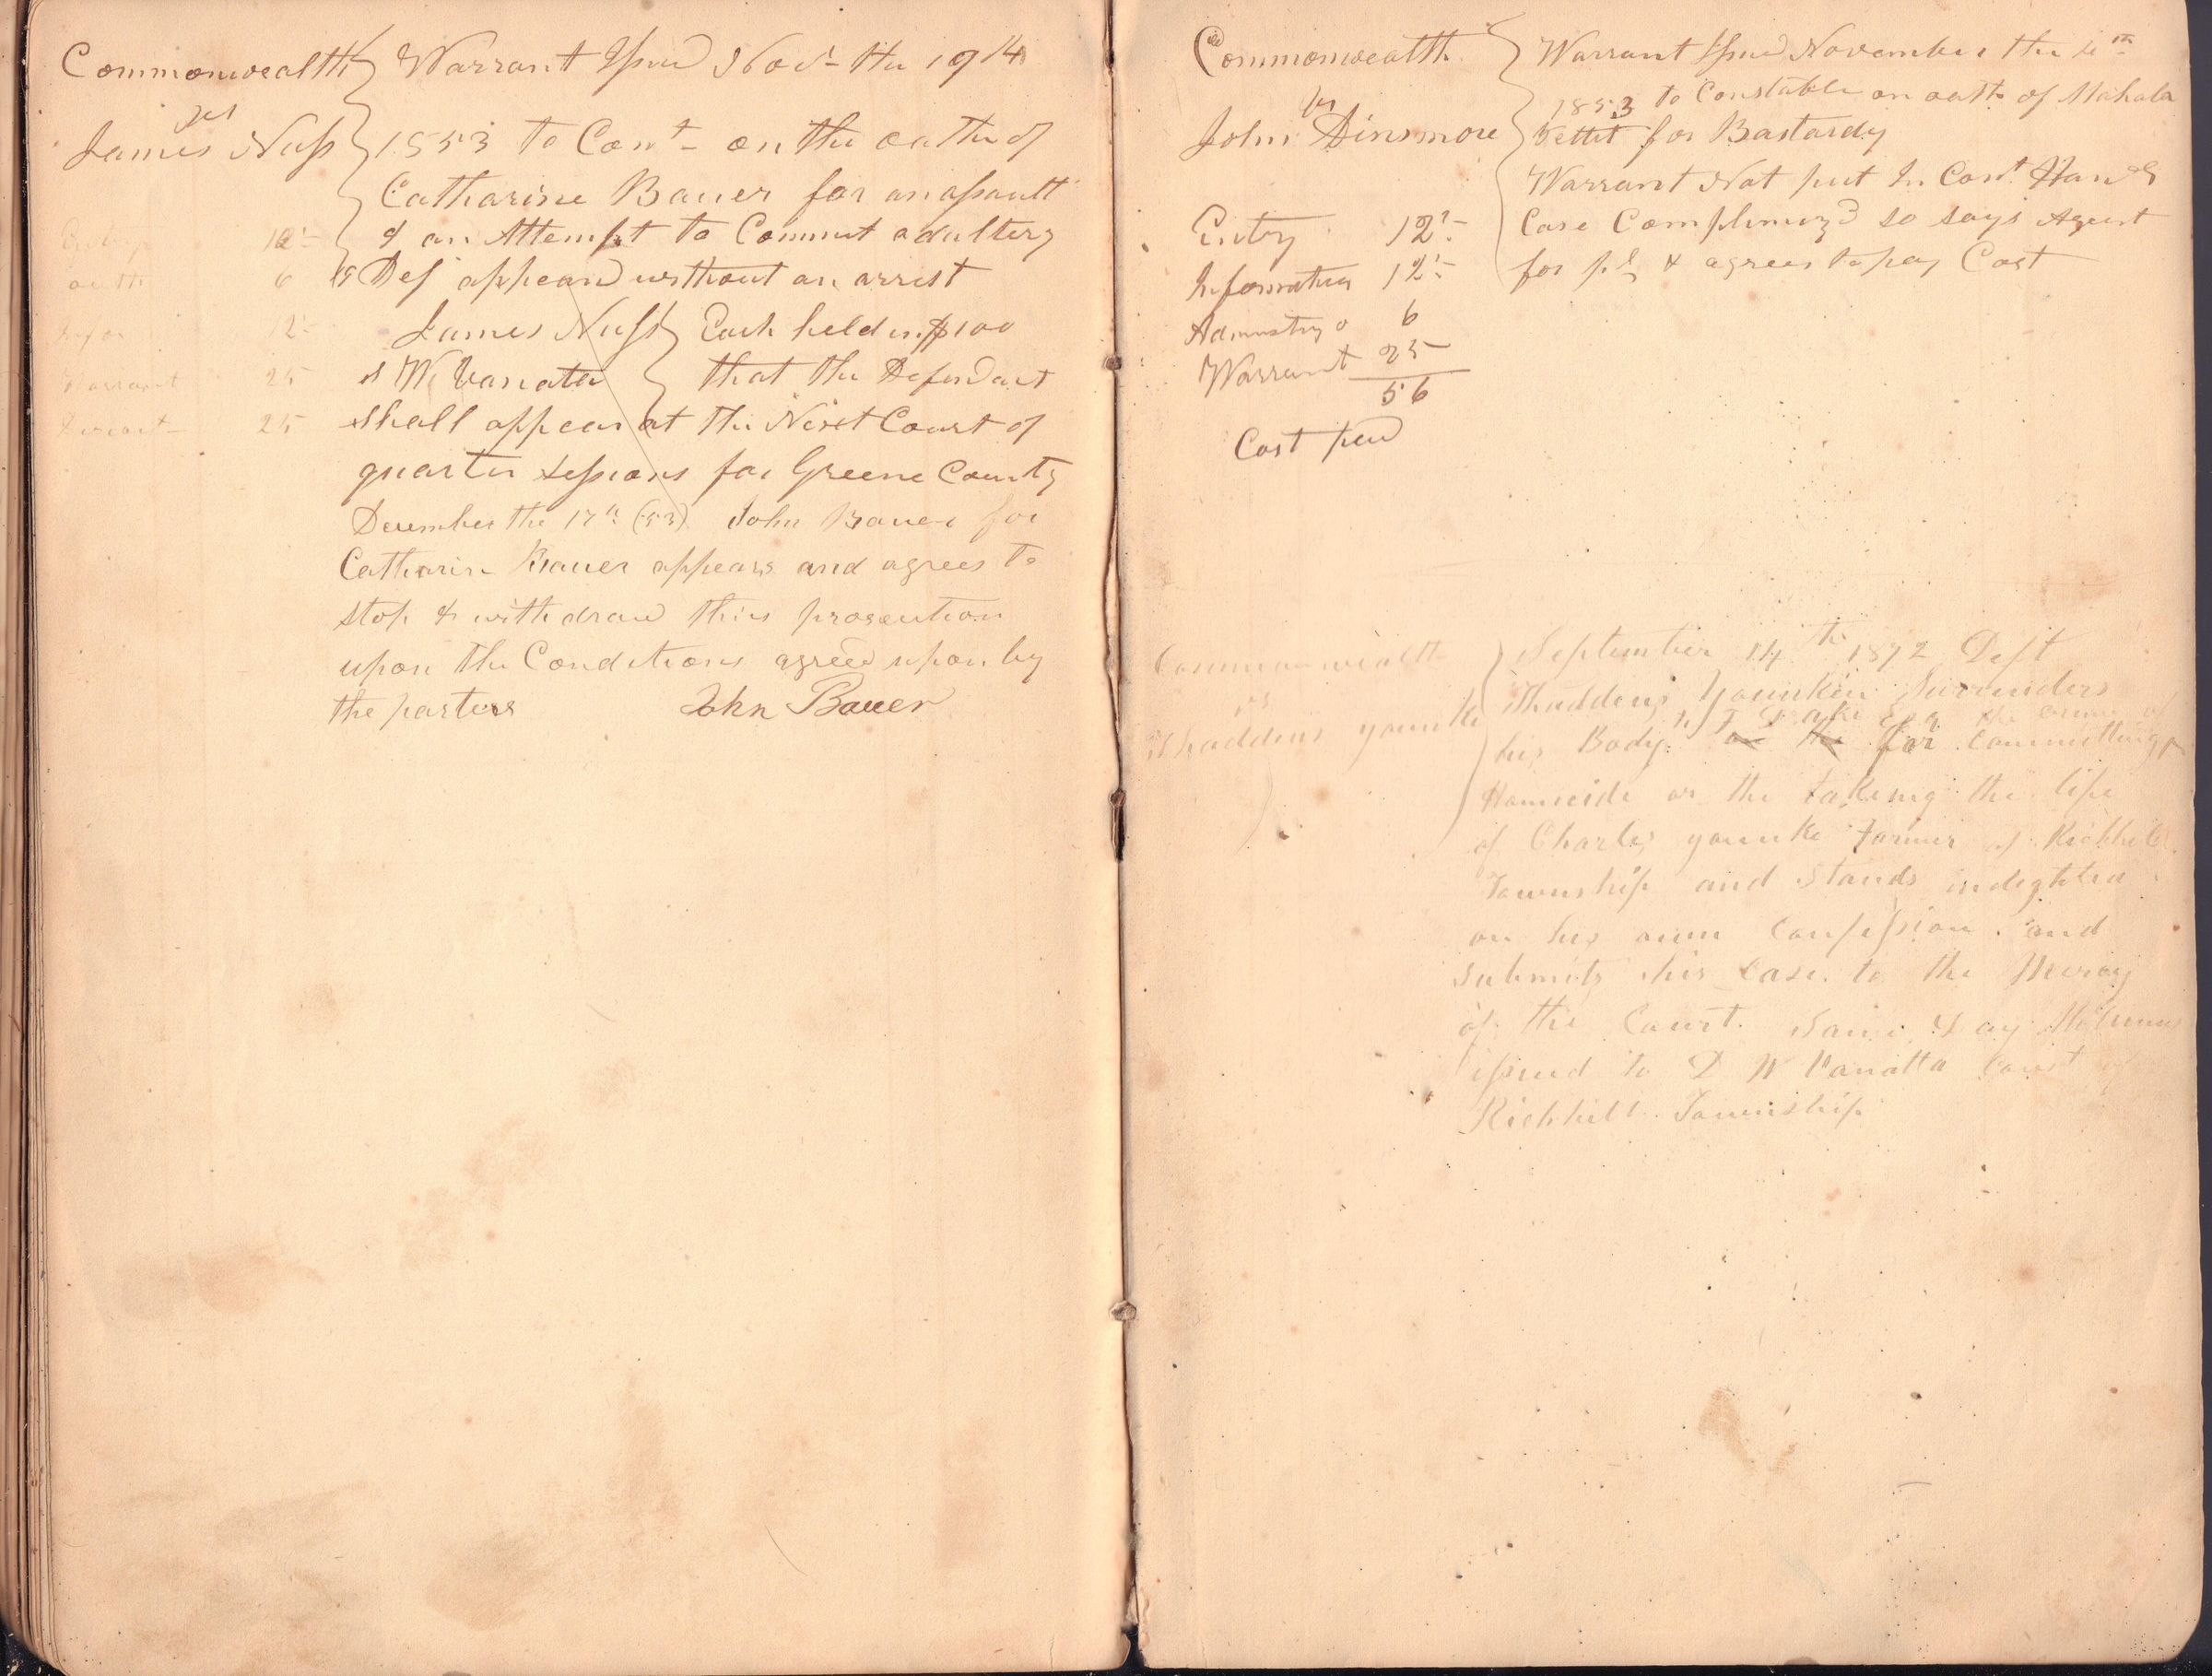 Commonwealth
vs
James Nuss
Warrant Issued Nov- the 19th
1853 to Cont- on the oathe of
Catharine Bauer for an assault
& an Attempt to Commit adultery
Def appeard without an arrest
James Nuss
& W Vanata
Each held in $100
that the Defendant
shall appear at the Next Court of
quarter sessions for Greene County
December the 17th (53) John Bauer for
Catharin Bauer appears and agrees to
stop & withdraw this prosecution
upon the Conditions agreed upon by
the parters John Bauer
oath 6
Infor 12-
Warrant 25
25
Commonwealth
vs
John Dinsmore
Warrant Issued November the
1853 to Constable on oath of Mahala
Pettit for Bastardy
Warrant Not put In Cont. Hands
Case Complimizd so says Agent
for pl & agrees to pay Cost
Entry 12-
Information 12-
6
Warrant 25
56
Cost paid
Commonwealth
vs
Thaddeus younke
September 14th 1872 Deft
Thaddeus Younken Surrenders
his Body to for the crime of committing
Homicide or the takeing the life
of Charles younke farmer of Richhill
Township and Stands
on his own Confession and
Submits his Case to the Mercy
of the Court. Same Day
issued to D W Vanatta Const of
Richhill Township